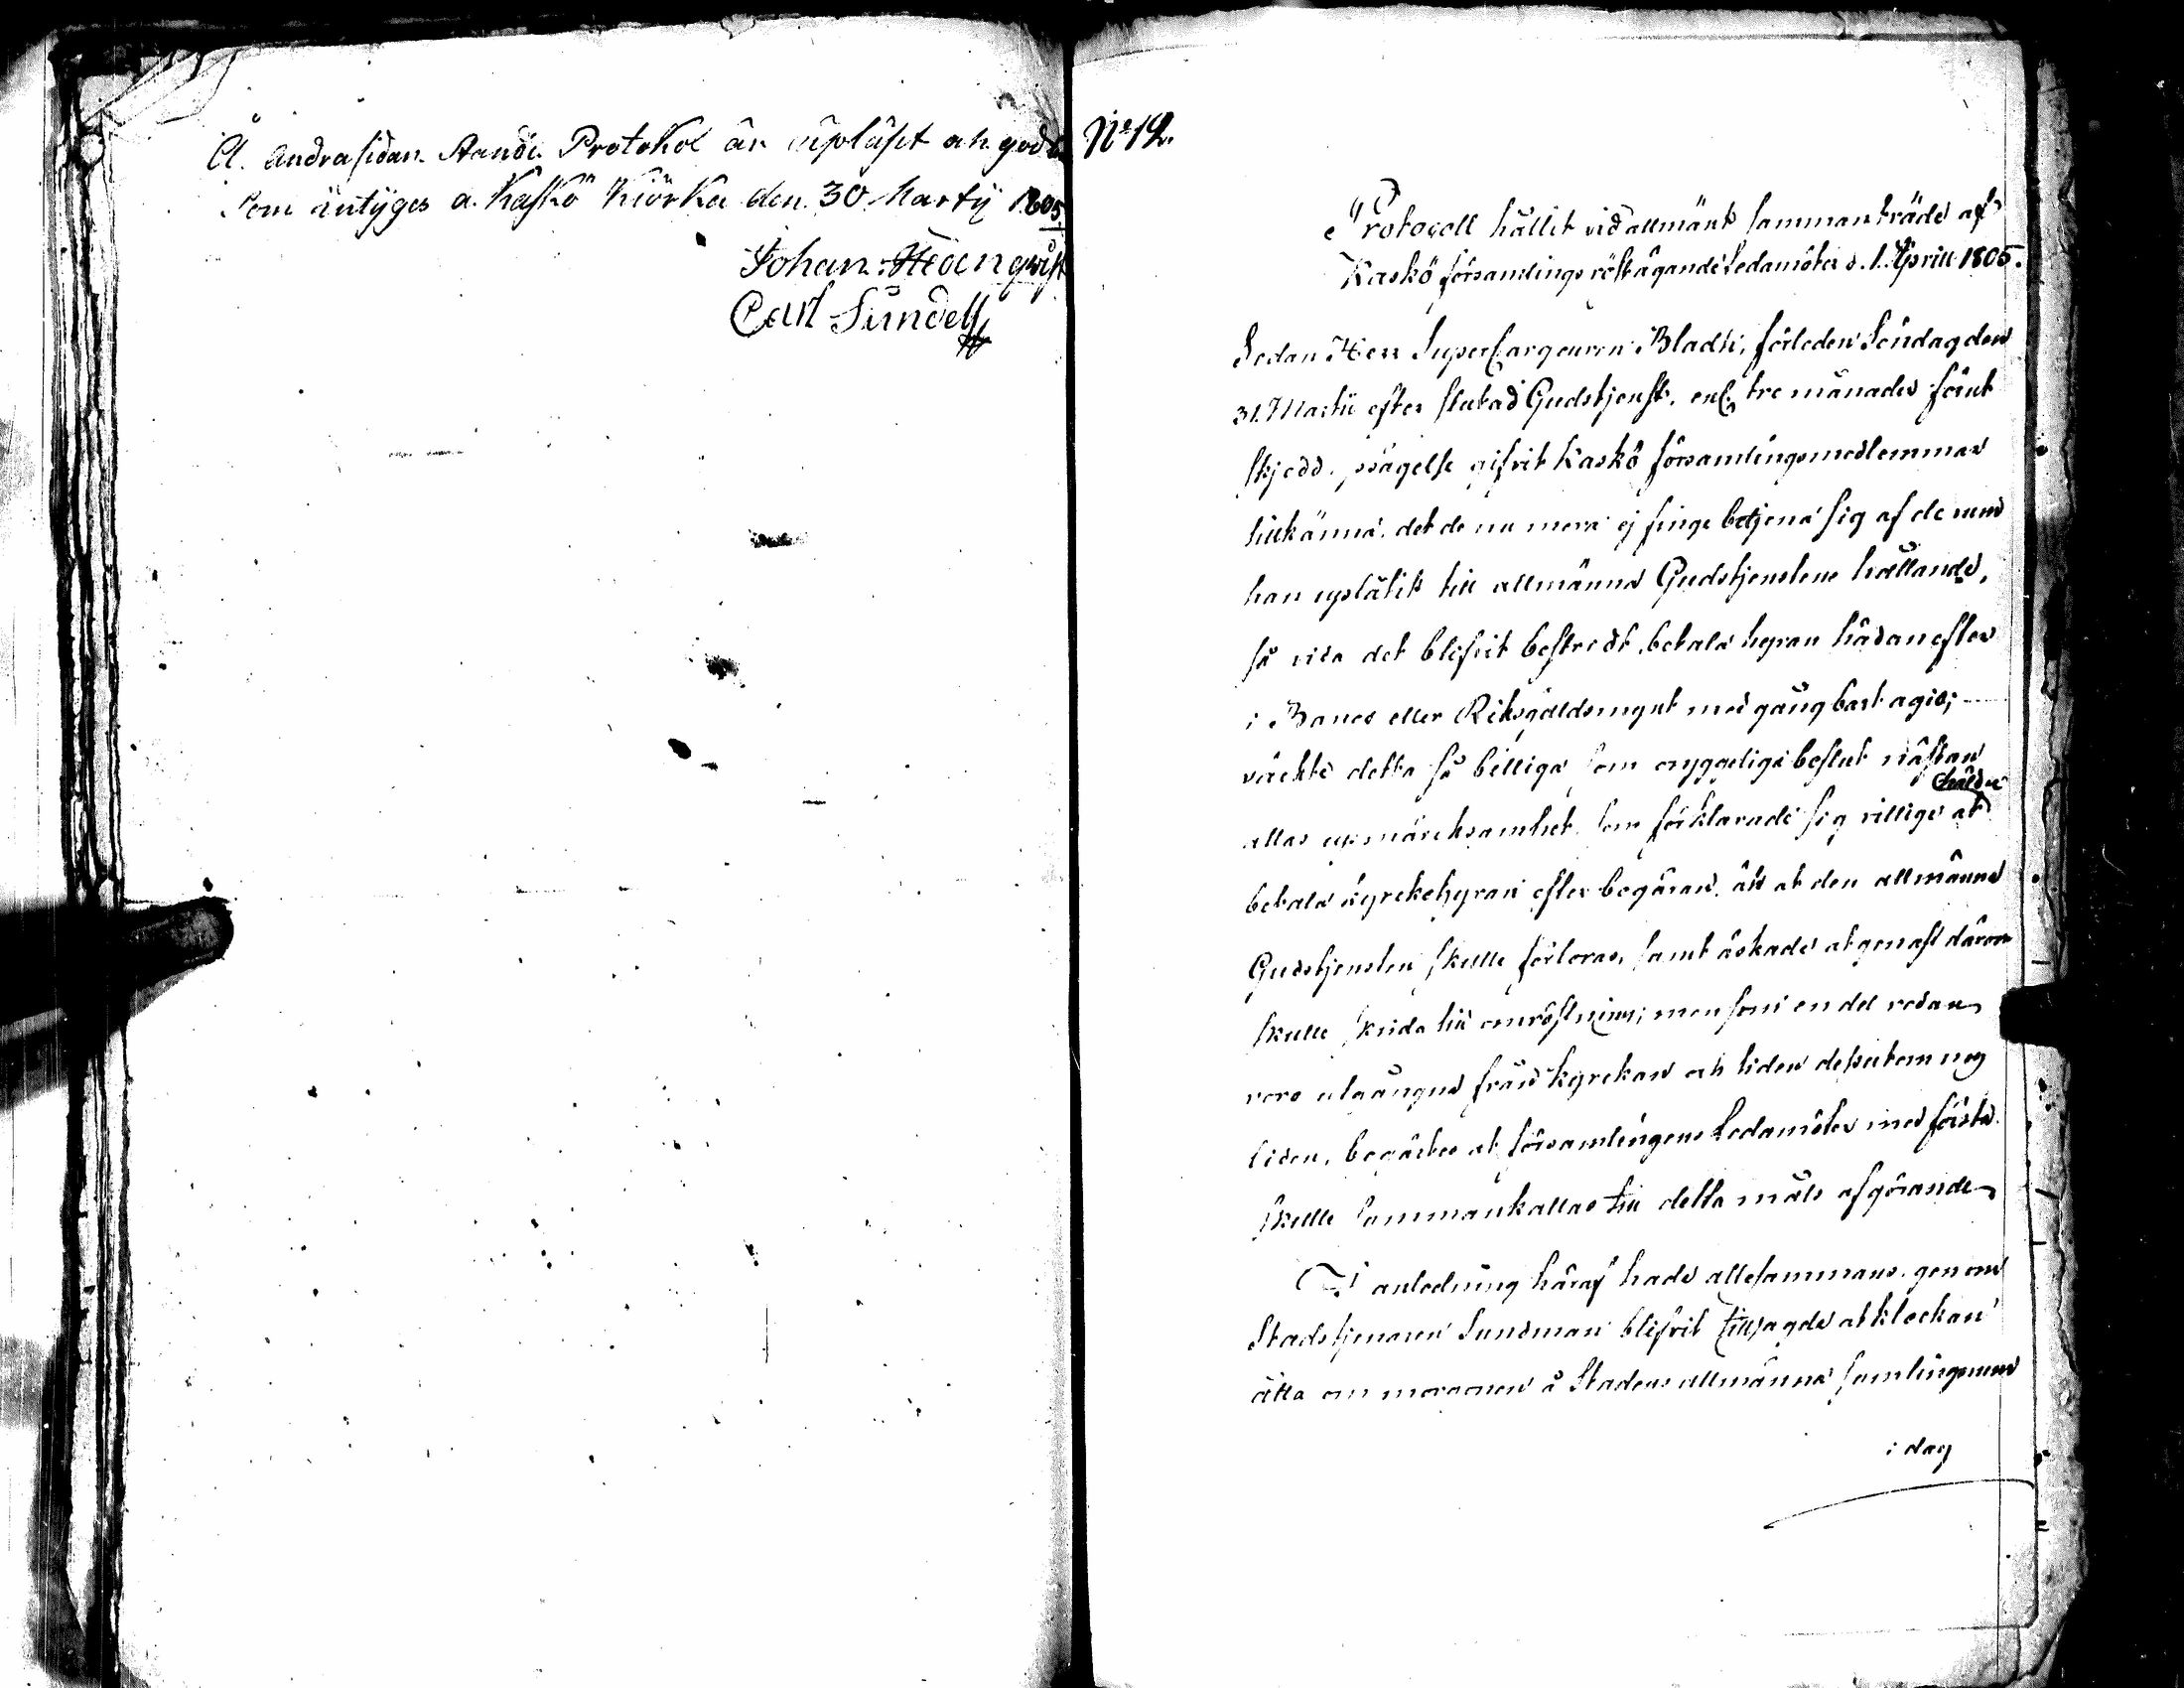 Å. Andra sidan. Stande Protokol är upläset ok godk
Som intyges a. Kaskö Kiörka den. 30 Marty 1805
Johan: Stenqwist
Carl Sundell
No 12.
Protocoll hållit vid allmänt sammanträde af
Kaskö församlings röstägande Ledamöter d. 1. Aprill 1805.
Sedan Herr SuperCargeuren Bladh, förleden Söndag den
31. Martii efter slutad Gudstjenst, enl. tre månader förut
skjedd. sägelse gifvit Kaskö församlings medlemmar
tillkänna, det de nu mera ej finge betjena sig af de rum
han uplåtit till allmänna Gudstjenstens hållande,
så vida det blifvit bestridt, betala hyran hädanefter
i Banco eller Riksgäldsmynt med gångbart agio;
väckte detta så billiga som oryggeliga beslut nästan
allas upmärcksamhet, som förklarade sig villige at heldre
betala kyrckehyran efter begäran, än at den allmänna
Gudstjensten skulle förloras, samt äskade at genast därom
skulle skrida till omröstning; men som en del redan
voro utgångne från kyrckan och tiden dessutom nog
liden, begärtes at församlingens Ledamöter med första
skulle sammankallas till detta måls afgörande
I anledning häraf hade allesammans genom
Stadstjenaren Sundman blifvit tillsagde at klockan
åtta om morgonen å Stadens allmänna samlingsrum
i dag